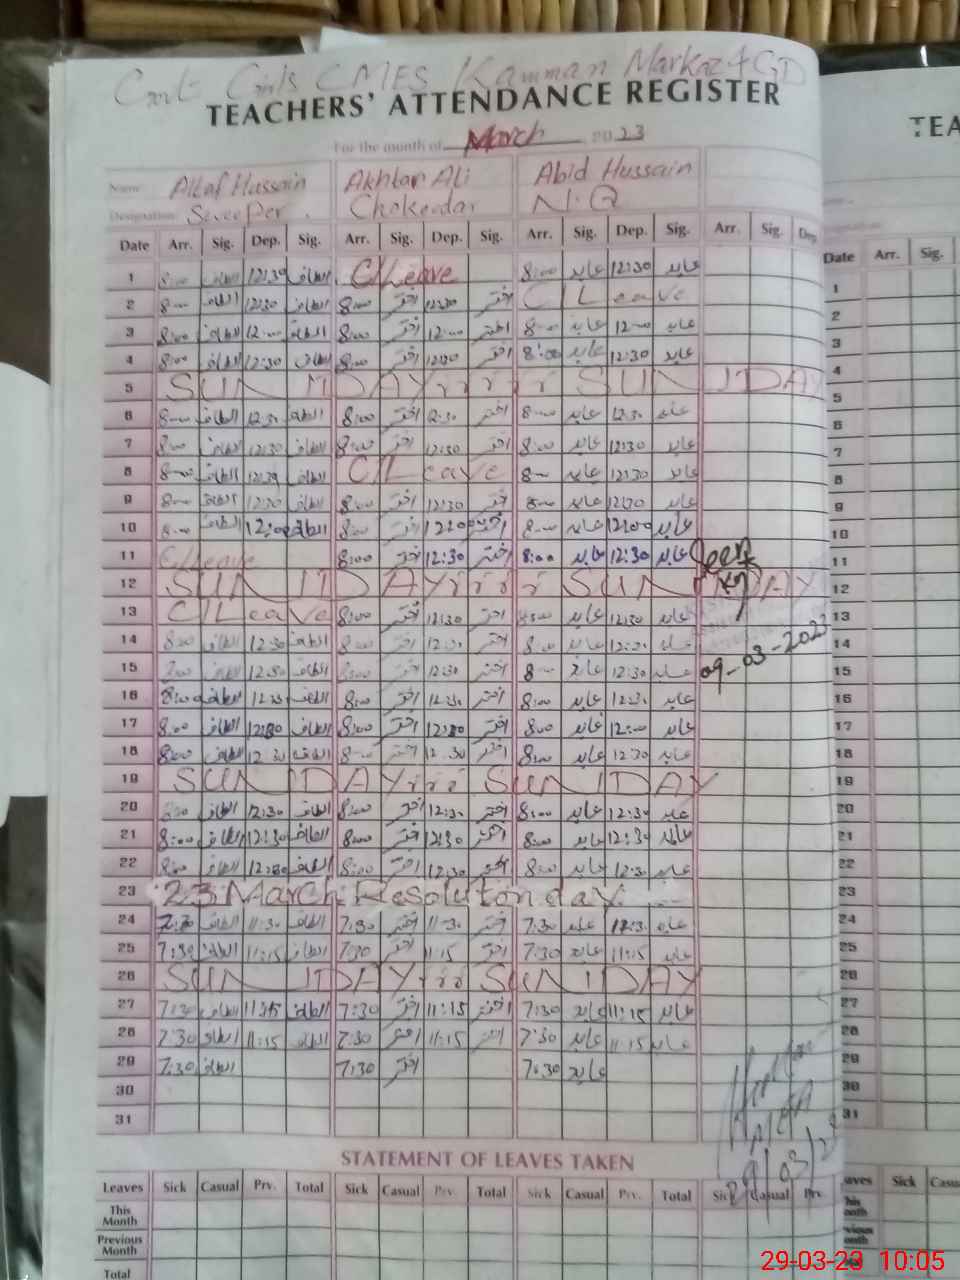 Govt Girls CMES Kamman Markaz 4 GD
TEACHERS' ATTENDANCE REGISTER
TEA
For the month of March 2023
Name Altaf Hussain Akhtar Ali Abid Hussain
Designation Sweeper. Chokeedar N.Q
Date Arr. Sig. Dep. Sig. Arr. Sig. Dep. Sig. Arr. Sig. Dep. Sig. Arr. Sig. Dep Date Arr. Sig.
1 8:00 الطاف 12:30 الطاف C/Leave 8:00 عابد 12:30 عابد 1
2 8:00 الطاف 12:30 الطاف 8:00 اختر 12:30 اختر C/Leave 2
3 8:00 الطاف 12:00 الطاف 8:00 اختر 12:00 اختر 8:00 عابد 12:00 عابد 3
4 8:00 الطاف 12:30 الطاف 8:00 اختر 12:30 اختر 8:00 عابد 12:30 عابد 4
5 SUNDAY SUNDAY 5
6 8:00 الطاف 12:30 الطاف 8:00 اختر 12:30 اختر 8:00 عابد 12:30 عابد 6
7 8:00 الطاف 12:30 الطاف 8:00 اختر 12:30 اختر 8:00 عابد 12:30 عابد 7
8 8:00 الطاف 12:30 الطاف C/Leave 8:00 عابد 12:30 عابد 8
9 8:00 الطاف 12:30 الطاف 8:00 اختر 12:30 اختر 8:00 عابد 12:30 عابد 9
10 8:00 الطاف 12:00 الطاف 8:00 اختر 12:00 اختر 8:00 عابد 12:00 عابد 10
11 C/Leave 8:00 اختر 12:30 اختر 8:00 عابد 12:30 عابد Seen 11
12 SUNDAY SUNDAY 12
13 C/Leave 8:00 اختر 12:30 اختر 8:00 عابد 12:30 عابد 13
14 8:00 الطاف 12:30 الطاف 8:00 اختر 12:30 اختر 8:00 عابد 12:30 عابد 09-03-2023 14
15 8:00 الطاف 12:30 الطاف 8:00 اختر 12:30 اختر 8:00 عابد 12:30 عابد 15
16 8:00 الطاف 12:30 الطاف 8:00 اختر 12:30 اختر 8:00 عابد 12:30 عابد 16
17 8:00 الطاف 12:30 الطاف 8:00 اختر 12:30 اختر 8:00 عابد 12:00 عابد 17
18 8:00 الطاف 12:30 الطاف 8:00 اختر 12:30 اختر 8:00 عابد 12:30 عابد 18
19 SUNDAY SUNDAY 19
20 8:00 الطاف 12:30 الطاف 8:00 اختر 12:30 اختر 8:00 عابد 12:30 عابد 20
21 8:00 الطاف 12:30 الطاف 8:00 اختر 12:30 اختر 8:00 عابد 12:30 عابد 21
22 8:00 الطاف 12:30 الطاف 8:00 اختر 12:30 اختر 8:00 عابد 12:30 عابد 22
23 23 March Resoluton day 23
24 7:30 الطاف 11:30 الطاف 7:30 اختر 11:30 اختر 7:30 عابد عابد 24
25 7:30 الطاف 11:15 الطاف 7:30 اختر 11:15 اختر 7:30 عابد 11:15 عابد 25
26 SUNDAY SUNDAY 26
27 7:30 الطاف 11:15 الطاف 7:30 اختر 11:15 اختر 7:30 عابد 11:15 عابد 27
28 7:30 الطاف 11:15 الطاف 7:30 اختر 11:15 اختر 7:30 عابد 11:15 عابد 28
29 7:30 الطاف 7:30 اختر 7:30 عابد 29
30 30
31 31
29/03/23
STATEMENT OF LEAVES TAKEN
Leaves Sick Casual Prv. Total Sick Casual Prv. Total Sick Casual Prv. Total Sick Casual Prv. aves Sick Casu
This Month
Previous Month
Total
29-03-23 10:05